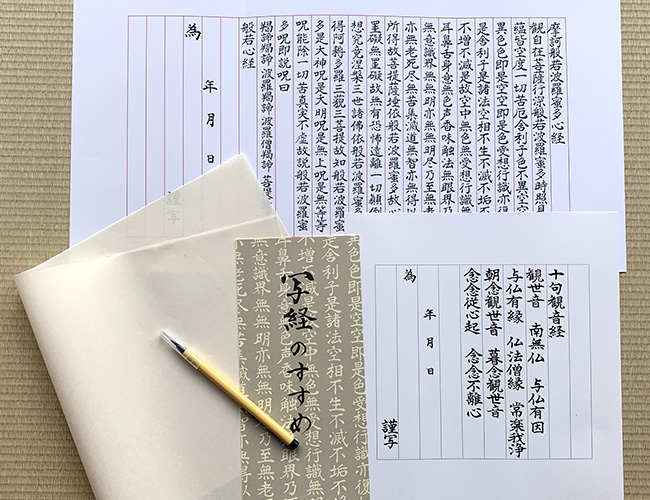 摩訶般若波羅蜜多心経
観自在菩薩行深般若波羅蜜多時照見
蘊皆空度一切苦厄舎利子色不異空空
異色色即是空空即是色受想行識亦復
是舎利子是諸法空相不生不滅不垢不
不増不減是故空中無色無受想行識
耳鼻舌身意無色声香味触法無眼界
無意識界無無明亦無無明尽乃至無
亦無老死尽無苦集滅道無智亦無得以
所得故菩提薩埵依般若波羅蜜多故心
罣礙無罣礙故無有恐怖遠離一切顛倒
想究竟涅槃三世諸佛依般若波羅蜜多
得阿耨多羅三藐三菩提故知般若波羅
多是大神呪是大明呪是無上呪是無等等
呪能除一切苦真実不虚故説般若波羅蜜
多呪即説呪曰
羯諦羯諦 波羅羯諦 波羅僧羯諦 菩提
般若心経
為
年 月 日
謹写
十句観音経
観世音 南無仏 与仏有因
与仏有縁 仏法僧縁 常楽我浄
朝念観世音 暮念観世音
念念従心起 念念不離心
為
年 月 日
謹写
写経のすすめ
色色即是空空即是色受想行識亦復
是舎利子是諸法空相不生不滅不垢不